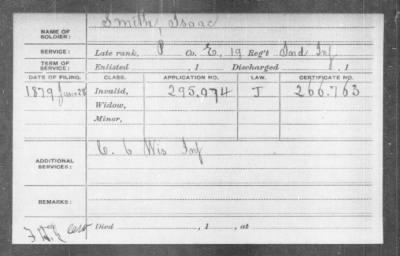 NAME OF SOLDIER: Smith, Isaac
SERVICE: Late rank, P Co. E, 19 Reg't Ind Inf.
TERM OF SERVICE: Enlisted , 1 Discharged , 1
DATE OF FILING. CLASS. APPLICATION NO. LAW. CERTIFICATE NO.
1879 June 28 Invalid, 295.074 J 266.763
Widow,
Minor,
ADDITIONAL SERVICES: C. 6 Wis Inf
REMARKS:
Died , 1 , at